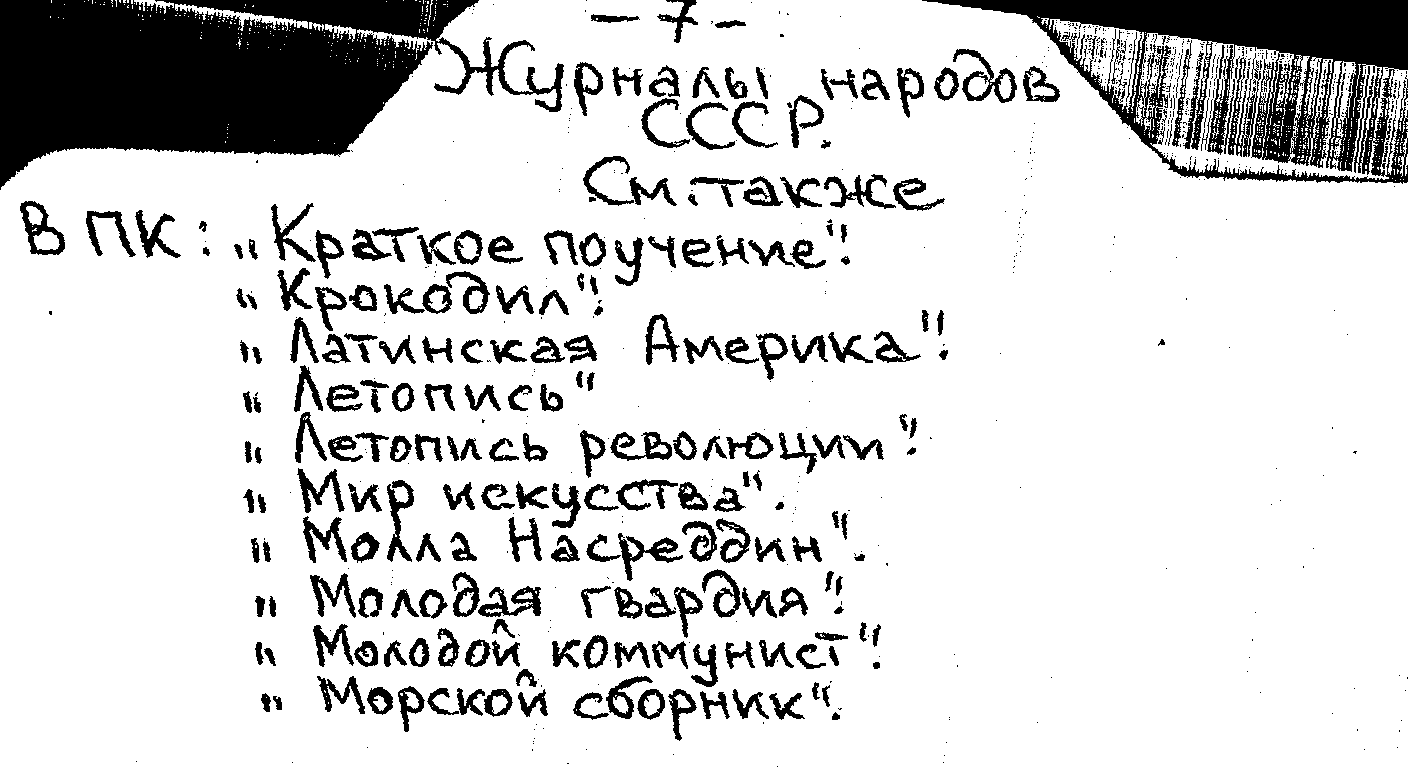 – 7 –
Журналы народов
СССР.
См. также
В ПК: „Краткое поучение".
„Крокодил".
„Латинская Америка".
„Летопись"
„Летопись революции".
„Мир искусства".
„Молла Насреддин".
„Молодая гвардия".
„Молодой коммунист".
„Морской сборник".